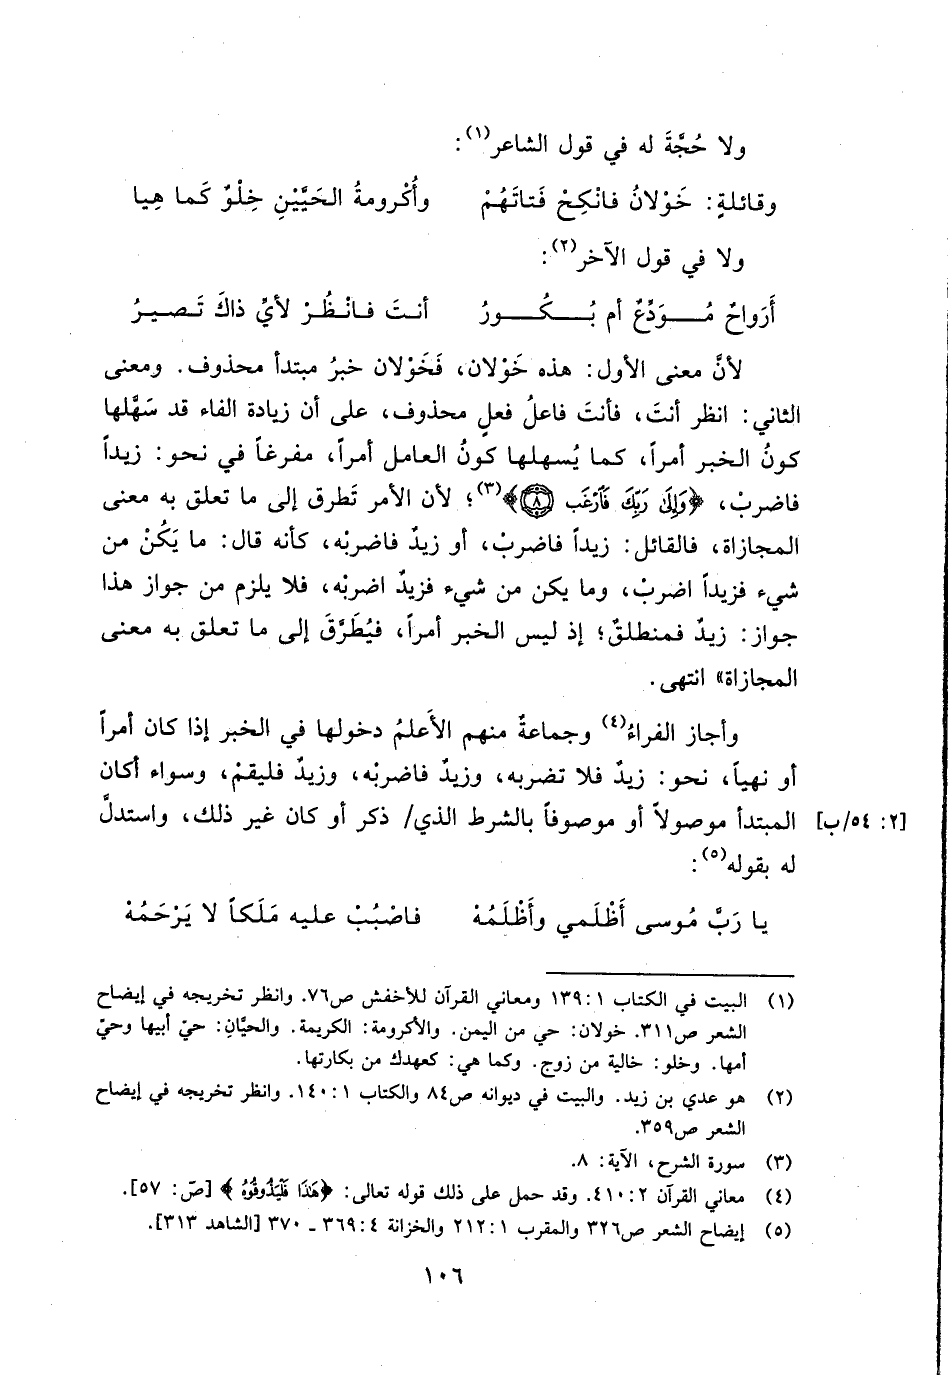 ولا حُجَّةَ له في قول الشاعر(١):
وقائلةٍ: خَوْلانُ فانْكِحْ فَتاتَهُمْ وأُكْرومةُ الحَيَّيْنِ خِلْوٌ كَما هِيا
ولا في قول الآخر(٢):
أَرَواحٌ مُـــوَدِّعٌ أم بُـــكُـــورُ أنـتَ فـانْـظُـرْ لأيِّ ذاكَ تَـصـيـرُ
لأنَّ معنى الأول: هذه خَوْلان، فَخَوْلان خبرُ مبتدأ محذوف. ومعنى
الثاني: انظر أنتَ، فأنتَ فاعلُ فعلٍ محذوف، على أن زيادة الفاء قد سَهَّلها
كونُ الخبر أمراً، كما يُسهلها كونُ العامل أمراً، مفرغاً في نحو: زيداً
فاضربْ، ﴿وَإِلَىٰ رَبِّكَ فَٱرۡغَب ٨﴾(٣)؛ لأن الأمر تَطرق إلى ما تعلق به معنى
المجازاة، فالقائل: زيداً فاضربْ، أو زيدٌ فاضربْه، كأنه قال: ما يَكُنْ من
شيء فزيداً اضربْ، وما يكن من شيء فزيدٌ اضربْه، فلا يلزم من جواز هذا
جواز: زيدٌ فمنطلقٌ؛ إذ ليس الخبر أمراً، فيُطَرَّقَ إلى ما تعلق به معنى
المجازاة» انتهى.
وأجاز الفراءُ(٤) وجماعةٌ منهم الأَعلمُ دخولها في الخبر إذا كان أمراً
أو نهياً، نحو: زيدٌ فلا تضربه، وزيدٌ فاضربْه، وزيدٌ فليقمْ، وسواء أكان
المبتدأ موصولاً أو موصوفاً بالشرط الذي/ ذكر أو كان غير ذلك، واستدلَّ [٢: ٥٤/ب]
له بقوله(٥):
يا رَبَّ مُوسى أَظْلَمي وأَظْلَمُهْ فاصْبُبْ عليه مَلَكاً لا يَرْحَمُهْ
(١) البيت في الكتاب ١٣٩:١ ومعاني القرآن للأخفش ص٧٦. وانظر تخريجه في إيضاح
الشعر ص٣١١. خولان: حي من اليمن. والأكرومة: الكريمة. والحيَّانِ: حيّ أبيها وحيّ
أمها. وخلو: خالية من زوج. وكما هي: كعهدك من بكارتها.
(٢) هو عدي بن زيد. والبيت في ديوانه ص٨٤ والكتاب ١٤٠:١. وانظر تخريجه في إيضاح
الشعر ص٣٥٩.
(٣) سورة الشرح، الآية: ٨.
(٤) معاني القرآن ٤١٠:٢. وقد حمل على ذلك قوله تعالى: ﴿هَٰذَا فَلۡيَذُوقُوهُ﴾ [صّ: ٥٧].
(٥) إيضاح الشعر ص٣٢٦ والمقرب ٢١٢:١ والخزانة ٣٦٩:٤ ـ ٣٧٠ [الشاهد ٣١٣].
١٠٦